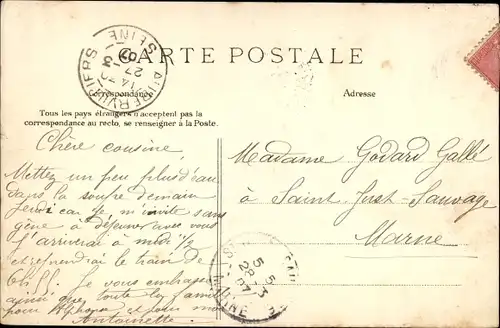 CARTE POSTALE
AUBERVILLIERS
SEINE
14 30
27 - 3
07
Correspondance
Adresse
Tous les pays étrangers n'acceptent pas la
correspondance au recto, se renseigner à la Poste.
Chère cousine
Mettez un peu plus d'eau
dans la soupe demain
Jeudi car je m'invite sans
gêne à déjeuner avec vous
J'arriverai à midi 1/2
et reprendrai le train de
6h.55. Je vous embrasse
ainsi que toute la famille
pour Alphonse et pour moi
Antoinette
Madame Godard Gallé
à Saint Just-Sauvage
Marne
5 5
28 - 3
07